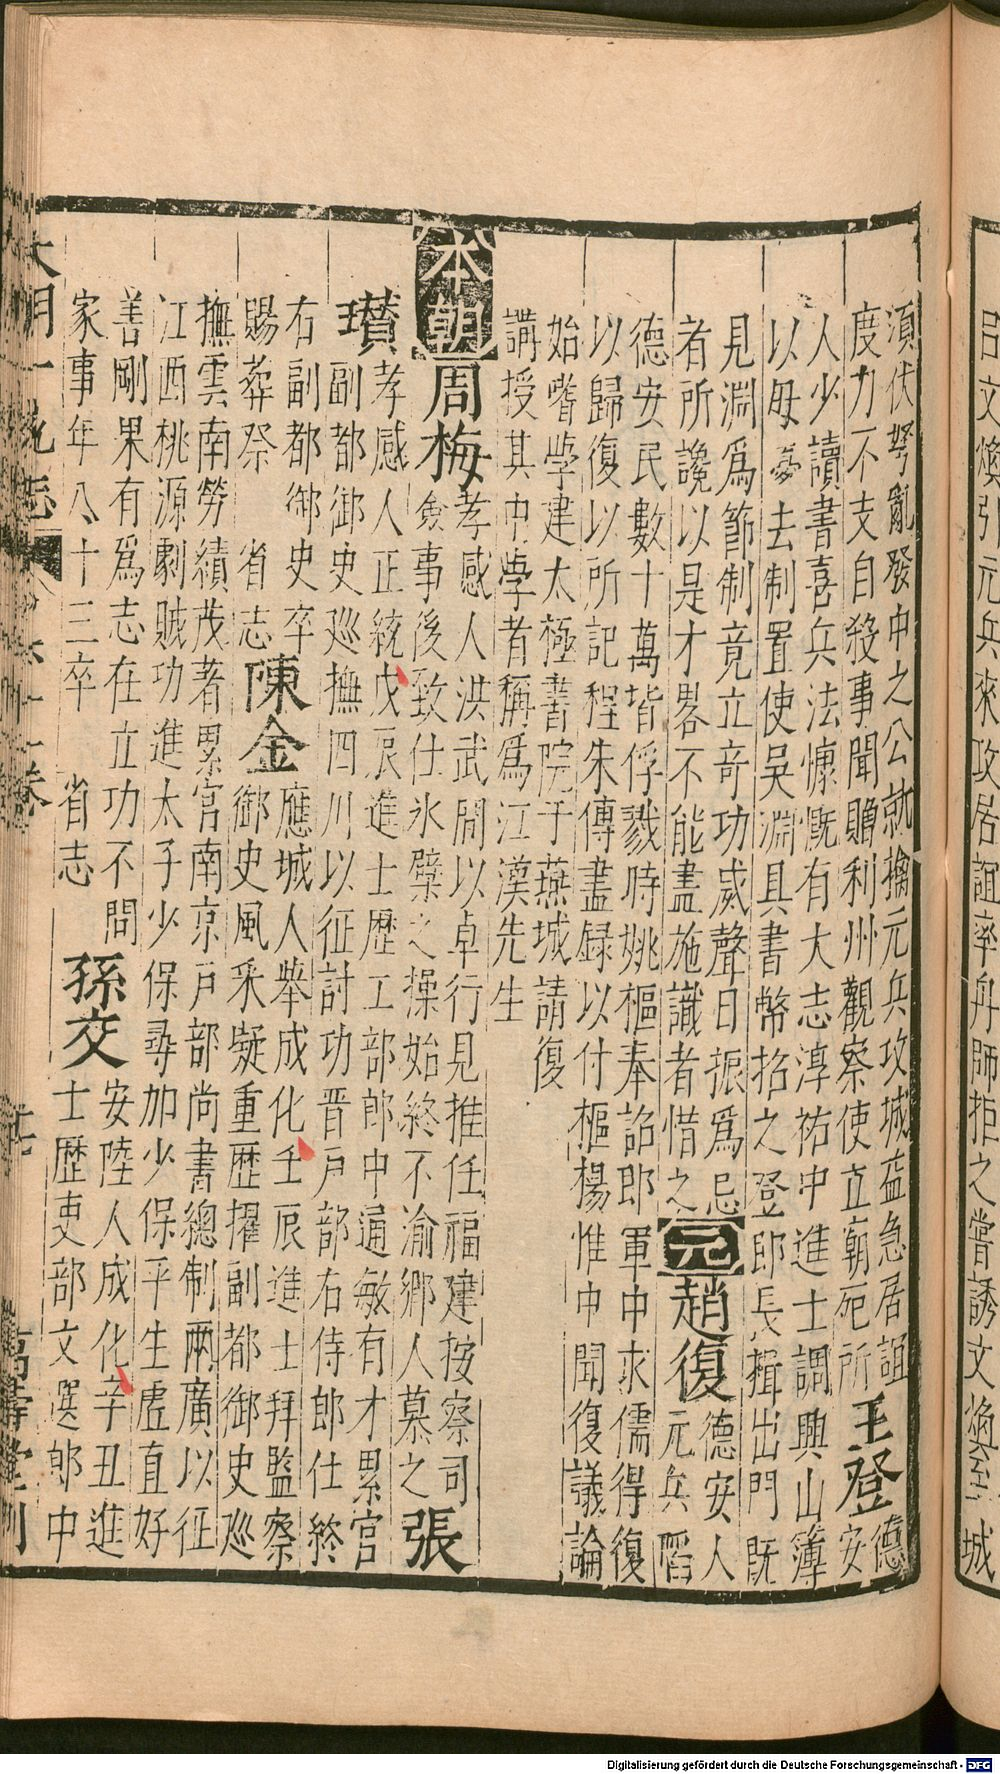 呂文煥引元兵來攻居誼率舟師拒之嘗誘文煥至城
須伏弩亂發中之公就擒元兵攻城益急居誼
度力不支自殺事聞贈利州觀察使立朝死所
王登
德
安
人少讀書喜兵法慷慨有大志淳祐中進士調興山簿
以母喪去制置使吳淵具書幣招之登即長揖出門既
見淵為節制竟立奇功威聲日振為忌
者所讒以是才畧不能盡施識者惜之
元
趙復
德安人
元兵陷
德安民數十萬皆俘戮時姚樞奉詔即軍中求儒得復
以歸復以所記程朱傳盡録以付樞楊惟中聞復議論
始嗜學建太極書院于燕城請復
講授其中學者稱為江漢先生
本朝
周梅
孝感人洪武間以卓行見推任福建按察司
僉事後致仕氷櫱之操始終不渝鄉人慕之
張
瓚
孝感人正統戊辰進士歷工部郎中通敏有才累官
副都御史巡撫四川以征討功晋戶部右侍郎仕終
右副都御史卒
賜葬祭 省志
陳金
應城人舉成化壬辰進士拜監察
御史風采凝重歴擢副都御史巡
撫雲南勞績茂著累官南京戶部尚書總制兩廣以征
江西桃源劇賊功進太子少保尋加少保平生虛直好
善剛果有為志在立功不問
家事年八十三卒 省志
孫交
安陸人成化辛丑進
士歷吏部文選郎中
大明一統志 萬壽堂刊
Digitalisierung gefördert durch die Deutsche Forschungsgemeinschaft - DFG